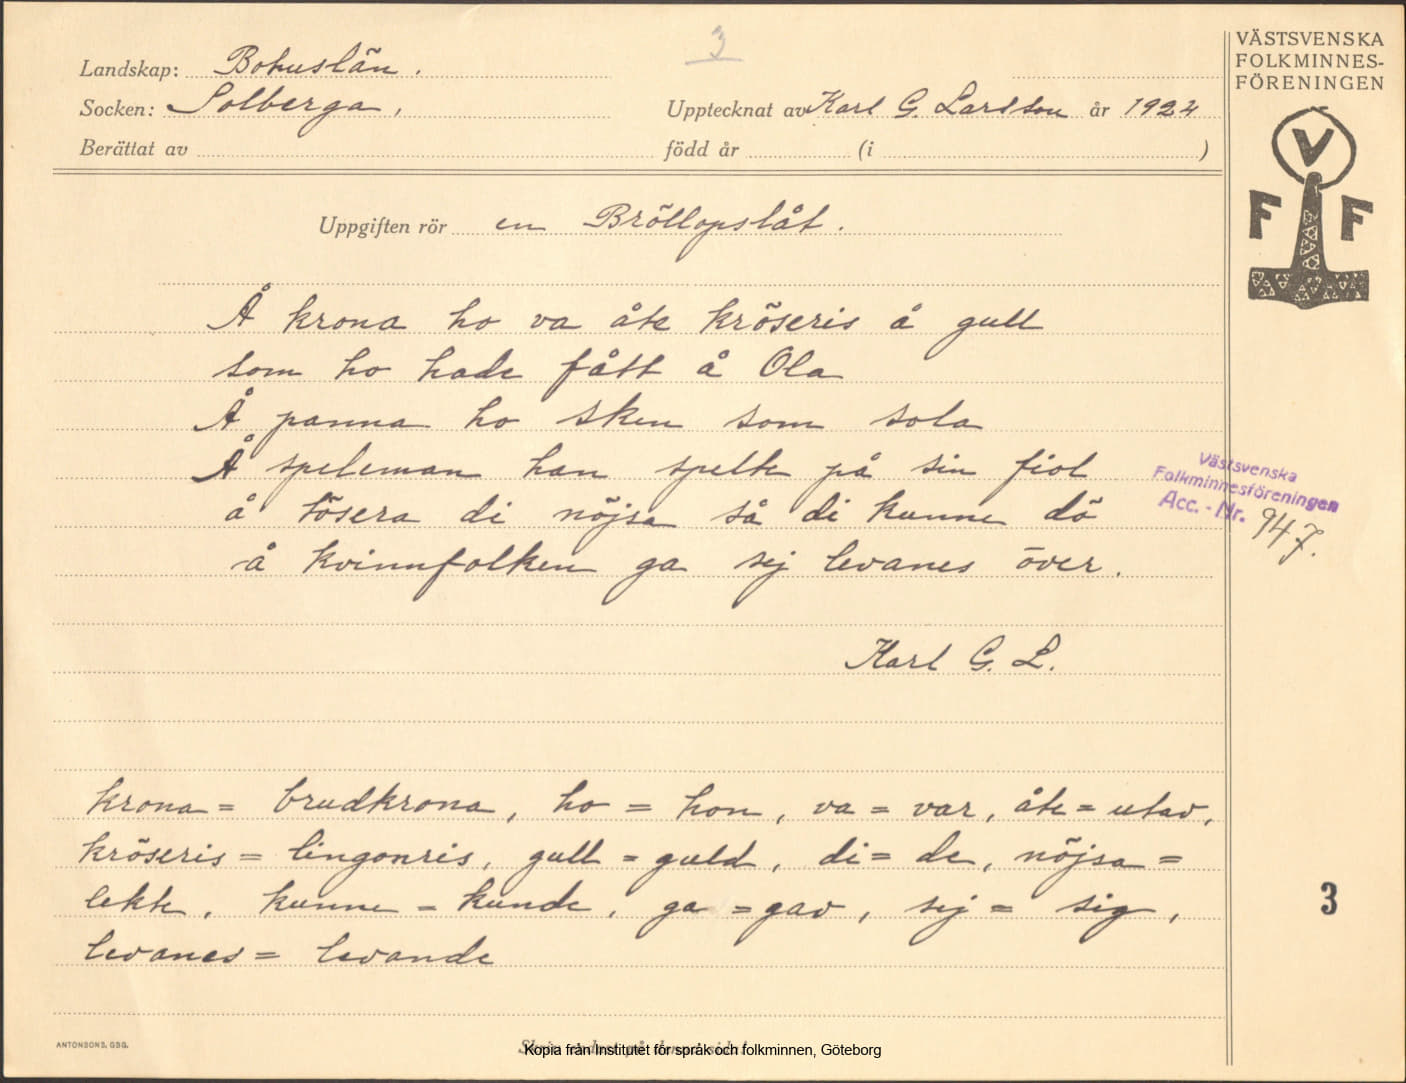 3
VÄSTSVENSKA
FOLKMINNES-
FÖRENINGEN
V
F F
Landskap: Bohuslän.
Socken: Solberga, Upptecknat av Karl G. Larsson år 1924
Berättat av född år (i )
Uppgiften rör en Bröllopslåt.
Å krona ho va åte kröseris å gull
som ho hade fått å Ola
Å panna ho sken som sola
Å speleman han spelte på sin fiol
å tösera di nöjsa så di kunne dö
å kvinnfolken ga sej levanes över.
Västsvenska
Folkminnesföreningen
Acc. - Nr. 947.
Karl G. L.
krona = brudkrona, ho = hon, va = var, åte = utav,
kröseris = lingonris, gull = guld, di = de, nöjsa =
lekte, kunne = kunde, ga = gav, sej = sig,
levanes = levande
3
ANTONSONS, GBG.
Kopia från Institutet för språk och folkminnen, Göteborg